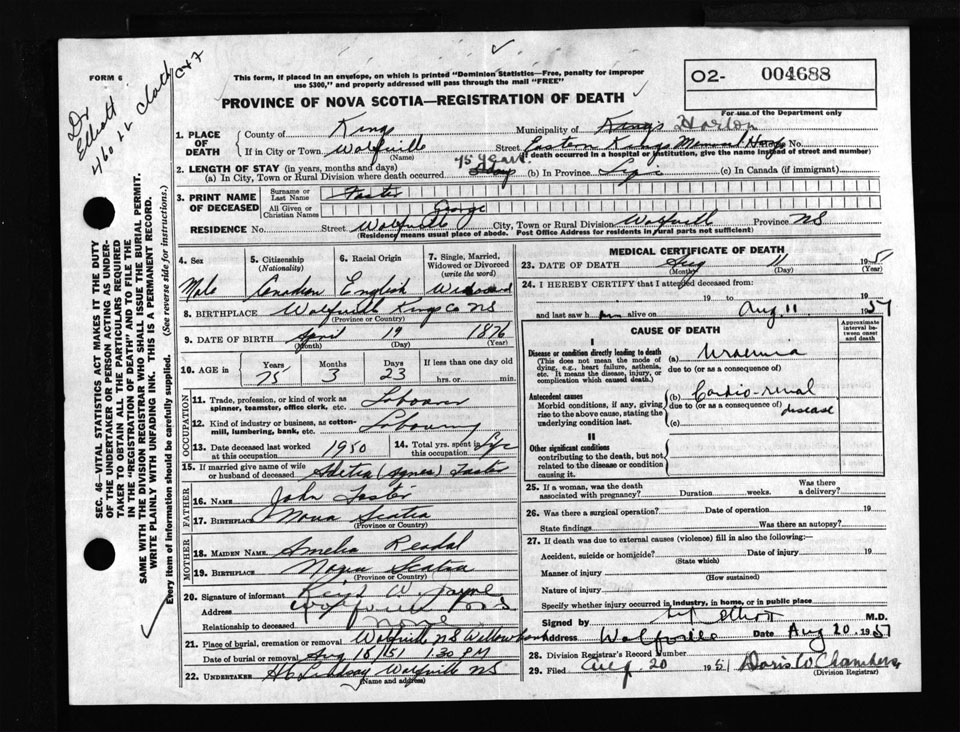 FORM 6
Dr Elliott
This form, if placed in an envelope, on which is printed "Dominion Statistics—Free, penalty for improper
use $300", and properly addressed will pass through the mail "FREE"
O2- 004688
For use of the Department only
PROVINCE OF NOVA SCOTIA—REGISTRATION OF DEATH
1. PLACE OF DEATH
County of Kings Municipality of Kings Horton
If in City or Town Wolfville (Name) Street Eastern Kings Memorial Hosp No.
(If death occurred in a hospital or institution, give the name instead of street and number)
2. LENGTH OF STAY (in years, months and days)
(a) In City, Town or Rural Division where death occurred 75 years days (b) In Province Life (c) In Canada (if immigrant)
3. PRINT NAME OF DECEASED
Surname or Last Name Faster
All Given or Christian Names George
RESIDENCE No. Street Wolfville City, Town or Rural Division Wolfville Province NS
(Residency means usual place of abode. Post Office Address for residents in rural parts not sufficient)
4. Sex Male
5. Citizenship (Nationality) Canadian
6. Racial Origin English
7. Single, Married, Widowed or Divorced (write the word) Widowed
8. BIRTHPLACE Wolfville Kings Co NS
(Province or Country)
9. DATE OF BIRTH April 19 1876
(Month) (Day) (Year)
10. AGE in Years 75 Months 3 Days 23 If less than one day old
hrs. or min.
OCCUPATION
11. Trade, profession, or kind of work as
spinner, teamster, office clerk, etc. Labourer
12. Kind of industry or business, as cotton-
mill, lumbering, bank, etc. Labouring
13. Date deceased last worked
at this occupation 1950
14. Total yrs. spent in
this occupation Life
15. If married give name of wife
or husband of deceased (Agnes) Faster
FATHER
16. NAME John Faster
17. BIRTHPLACE Nova Scotia
(Province or Country)
MOTHER
18. MAIDEN NAME Amelia
19. BIRTHPLACE Nova Scotia
(Province or Country)
20. Signature of informant W. Jayne
Address Wolfville NS
Relationship to deceased none
21. Place of burial, cremation or removal Wolfville NS Willowbank
Date of burial or removal Aug 1:30 PM
22. UNDERTAKER Lindsay Wolfville NS
(Name and address)
MEDICAL CERTIFICATE OF DEATH
23. DATE OF DEATH Aug 11 195
(Month) (Day) (Year)
24. I HEREBY CERTIFY that I attended deceased from:
19 to 19
and last saw h alive on Aug 11 1951
CAUSE OF DEATH
Approximate interval between onset and death
I
Disease or condition directly leading to death
(This does not mean the mode of
dying, e.g., heart failure, asthenia,
etc. It means the disease, injury, or
complication which caused death.)
(a) Uraemia
due to (or as a consequence of)
Antecedent causes
Morbid conditions, if any, giving
rise to the above cause, stating the
underlying condition last.
(b) Cardio-renal
due to (or as a consequence of) disease
(c)
II
Other significant conditions
contributing to the death, but not
related to the disease or condition
causing it.
25. If a woman, was the death
associated with pregnancy? Duration weeks. Was there
a delivery?
26. Was there a surgical operation? Date of operation 19
State findings Was there an autopsy?
27. If death was due to external causes (violence) fill in also the following:
Accident, suicide or homicide? Date of injury 19
(State which)
Manner of injury
(How sustained)
Nature of injury
Specify whether injury occurred in industry, in home, or in public place
Signed by Elliott M.D.
Address Wolfville Date Aug 20 1951
28. Division Registrar's Record Number
29. Filed Aug 20 1951 Doris W Chambers
(Division Registrar)
SEC. 46—VITAL STATISTICS ACT MAKES IT THE DUTY
OF THE UNDERTAKER OR PERSON ACTING AS UNDER-
TAKER TO OBTAIN ALL THE PARTICULARS REQUIRED
IN THE "REGISTRATION OF DEATH" AND TO FILE THE
SAME WITH THE DIVISION REGISTRAR WHO SHALL ISSUE THE BURIAL PERMIT.
WRITE PLAINLY WITH UNFADING INK. THIS IS A PERMANENT RECORD.
Every item of information should be carefully supplied. (See reverse side for instructions.)